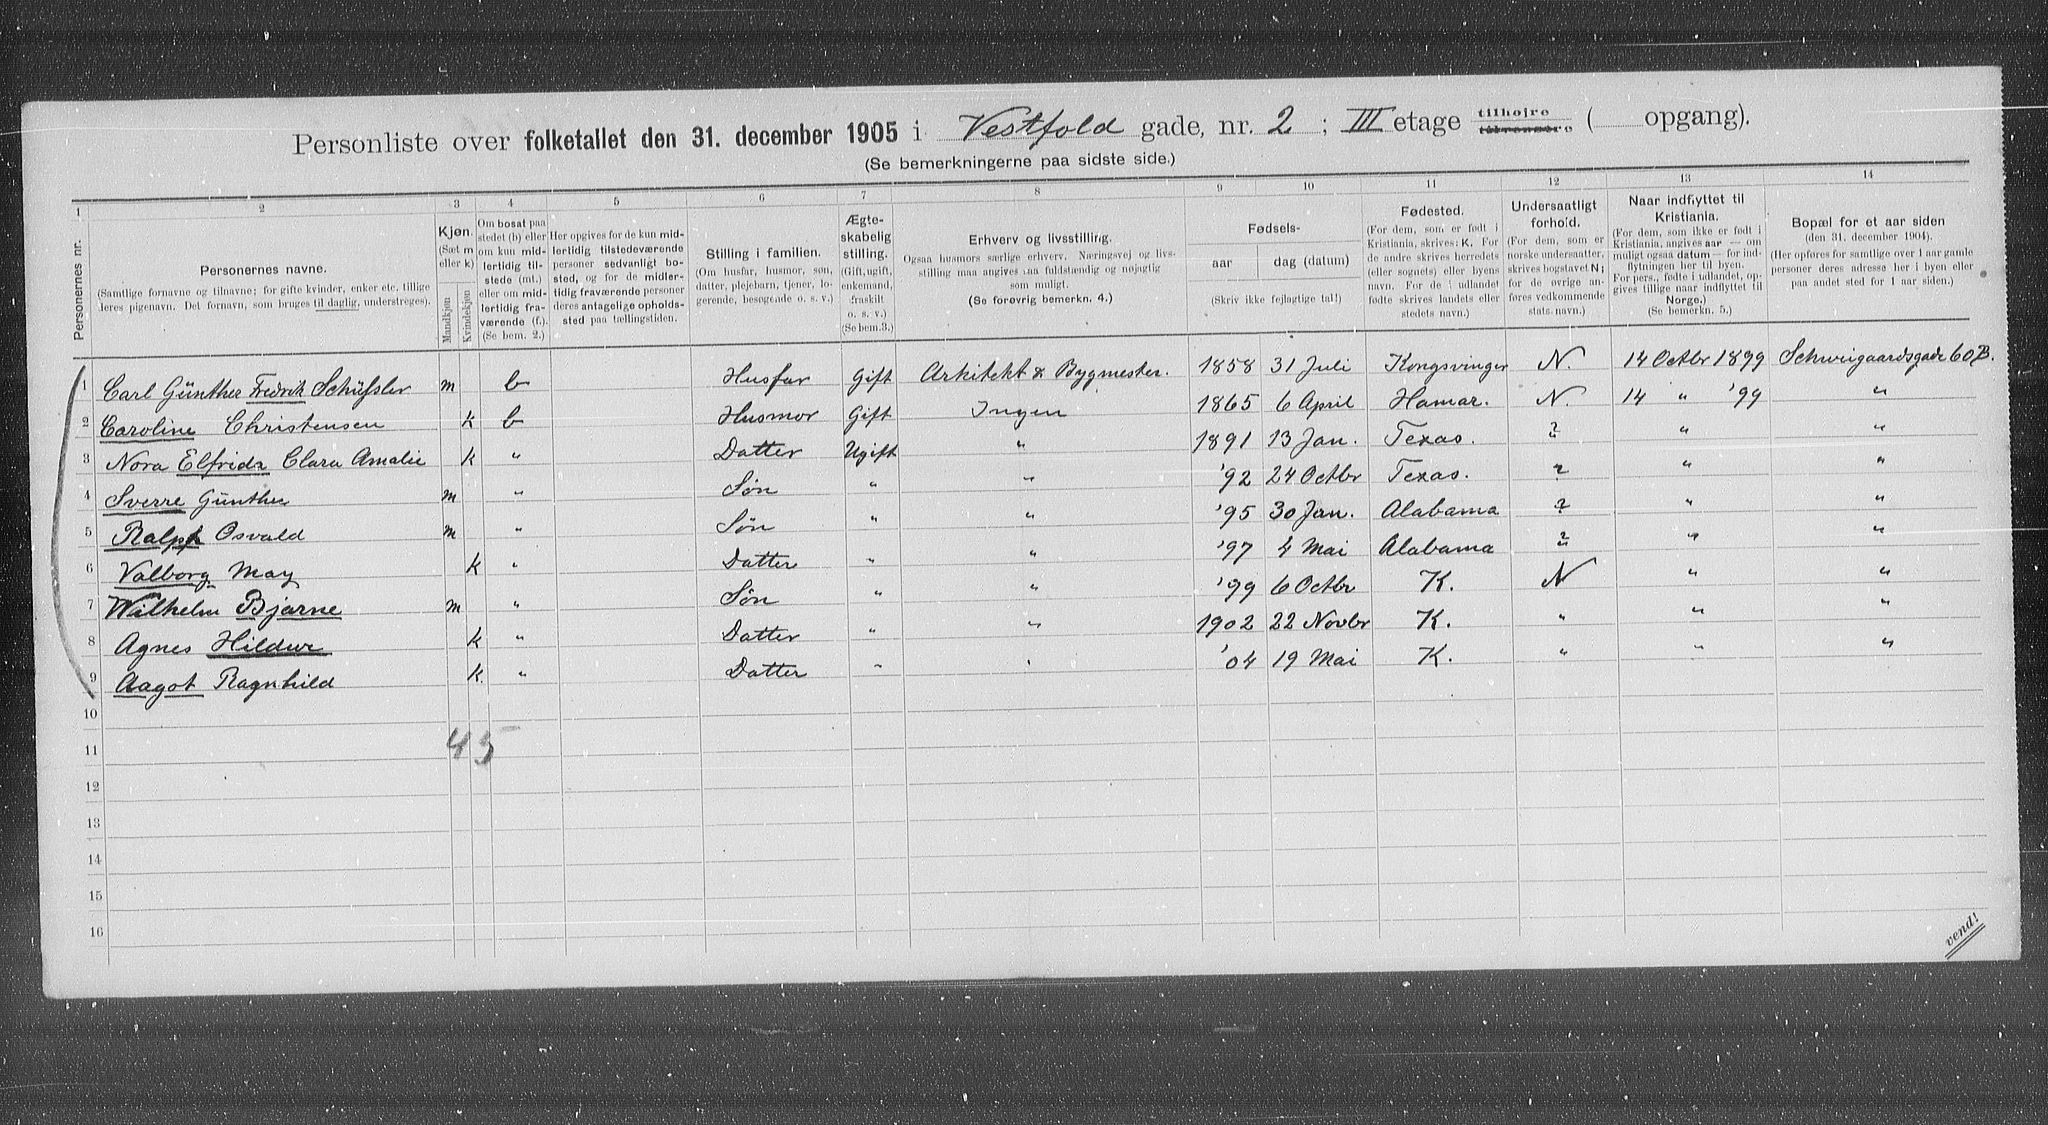 Personliste over folketallet den 31. december 1905 i Vestfold gade, nr. 2 ; III etage tilhøjre tilvenstre ( opgang).
(Se bemerkningerne paa sidste side.)
1 2 3 4 5 6 7 8 9 10 11 12 13 14
Personernes nr.
Personernes navne.
(Samtlige fornavne og tilnavne; for gifte kvinder, enker etc. tillige
deres pigenavn. Det fornavn, som bruges til daglig, understreges).
Kjøn.
(Sæt m
eller k)
Mandkjøn
Kvindekjøn
Om bosat paa
stedet (b) eller
om kun mid-
lertidig til-
stede (mt.)
eller om mid-
lertidig fra-
værende (f.)
(Se bem. 2.)
Her opgives for de kun mid-
lertidig tilstedeværende
personer sedvanligt bo-
sted, og for de midler-
tidig fraværende personer
deres antagelige opholds-
sted paa tællingstiden.
Stilling i familien.
(Om husfar, husmor, søn,
datter, plejebarn, tjener, lo-
gerende, besøgende o. s. v.)
Ægte-
skabelig
stilling.
(Gift, ugift,
enkemand,
fraskilt
o. s. v.)
(Se bem.3.)
Erhverv og livsstilling.
Ogsaa husmors særlige erhverv. Næringsvej og livs-
stilling maa angives saa fuldstændig og nøjagtig
som muligt.
(Se forøvrig bemerkn. 4.)
Fødsels-
aar dag (datum)
(Skriv ikke fejlagtige tal!)
Fødested.
(For dem, som er født i
Kristiania, skrives: K. For
de andre skrives herredets
(eller sognets) eller byens
navn. For de i udlandet
fødte skrives landets eller
stedets navn.)
Undersaatligt
forhold.
(For dem, som er
norske undersaatter,
skrives bogstavet N;
for de øvrige an-
føres vedkommende
stats navn.)
Naar indflyttet til
Kristiania.
(For dem, som ikke er født i
Kristiania, angives aar — om
muligt ogsaa datum — for ind-
flytningen her til byen.
For pers., fødte i udlandet, op-
gives tillige naar indflyttet til
Norge.)
(Se bemerkn. 5.)
Bopæl for et aar siden
(den 31. december 1904).
(Her opføres for samtlige over 1 aar gamle
personer deres adresse her i byen eller
paa andet sted for 1 aar siden.)
1 Carl Günther Fredrik Schüssler m b Husfar Gift Arkitekt & Bygmester. 1858 31 Juli Kongsvinger N. 14 Octbr 1899 Schweigaardsgade 60B.
2 Caroline Christensen k b Husmor Gift Ingen 1865 6 April Hamar. N 14 " '99 "
3 Nora Elfrida Clara Amalie k " Datter Ugift " 1891 13 Jan. Texas. ? " "
4 Sverre Günther m " Søn " " '92 24 Octbr Texas. ? " "
5 Ralph Osvald m " Søn " " '95 30 Jan. Alabama ? " "
6 Valborg May k " Datter " " '97 4 Mai Alabama ? " "
7 Wilhelm Bjarne m " Søn " " '99 6 Octbr K. N " "
8 Agnes Hildur k " Datter " " 1902 22 Novbr K. " " "
9 Aagot Ragnhild k. " Datter " " '04 19 Mai K. " " "
10
11 45
12
13
14
15
16
vend!